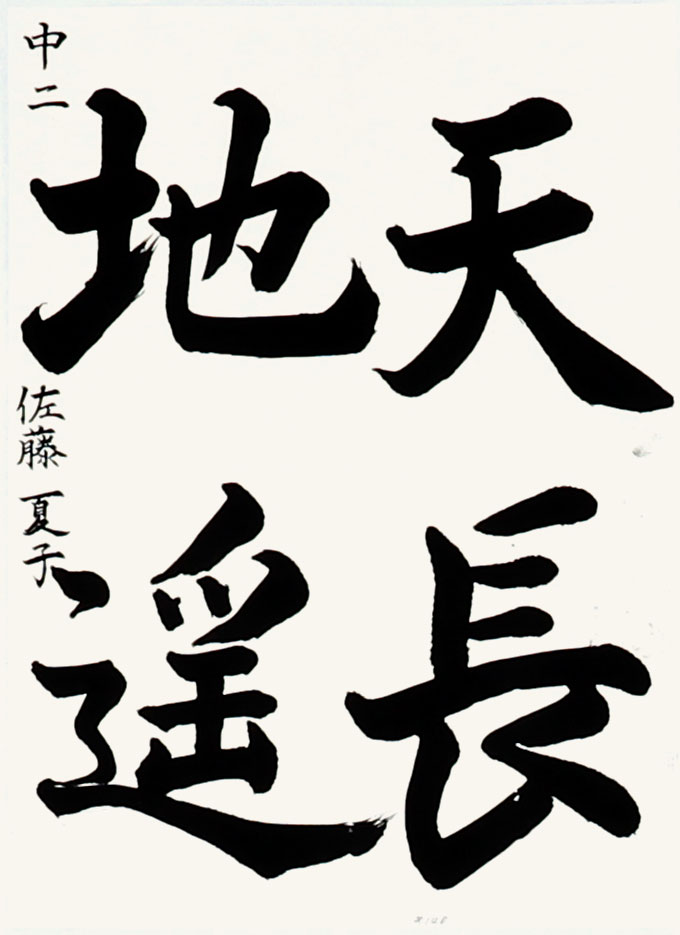 天長
地遥
中二 佐藤 夏子